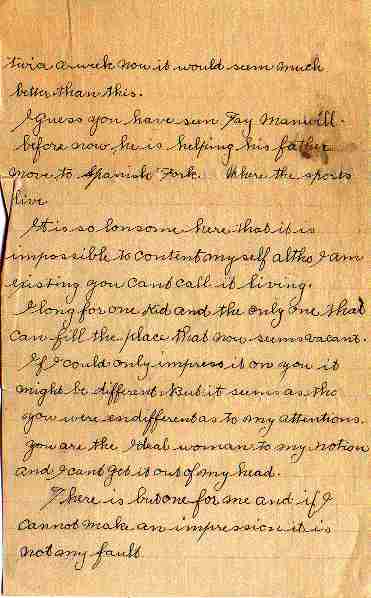 twice a week now it would seem much
better than this.
I guess you have seen Fay Manwill.
before now, he is helping his father
move to Spanish Fork. Where the sports
live
It is so lonsome here that it is
impossible to content myself altho I am
existing you cant call it living.
I long for one Kid and the only one that
can fill the place that now seems vacant.
If I could only impress it on you it
might be different But it seems as tho
you were endifferent as to my attentions.
you are the Ideal woman to my notion
and I cant get it out of my head.
There is but one for me and if I
cannot make an impression it is
not my fault